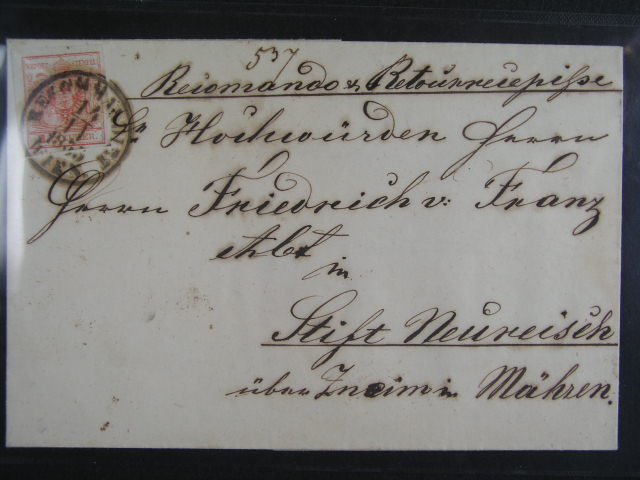 537
Recomando & Retourrecepisse
Sr Hochwürden Herrn
Herrn Friedrich v: Franz
Abt
in
Stift Neureisch
über Znaim in Mähren.